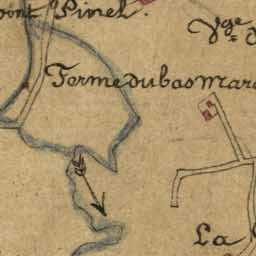 pont Pinel.
Vge
Ferme du bas mar
La